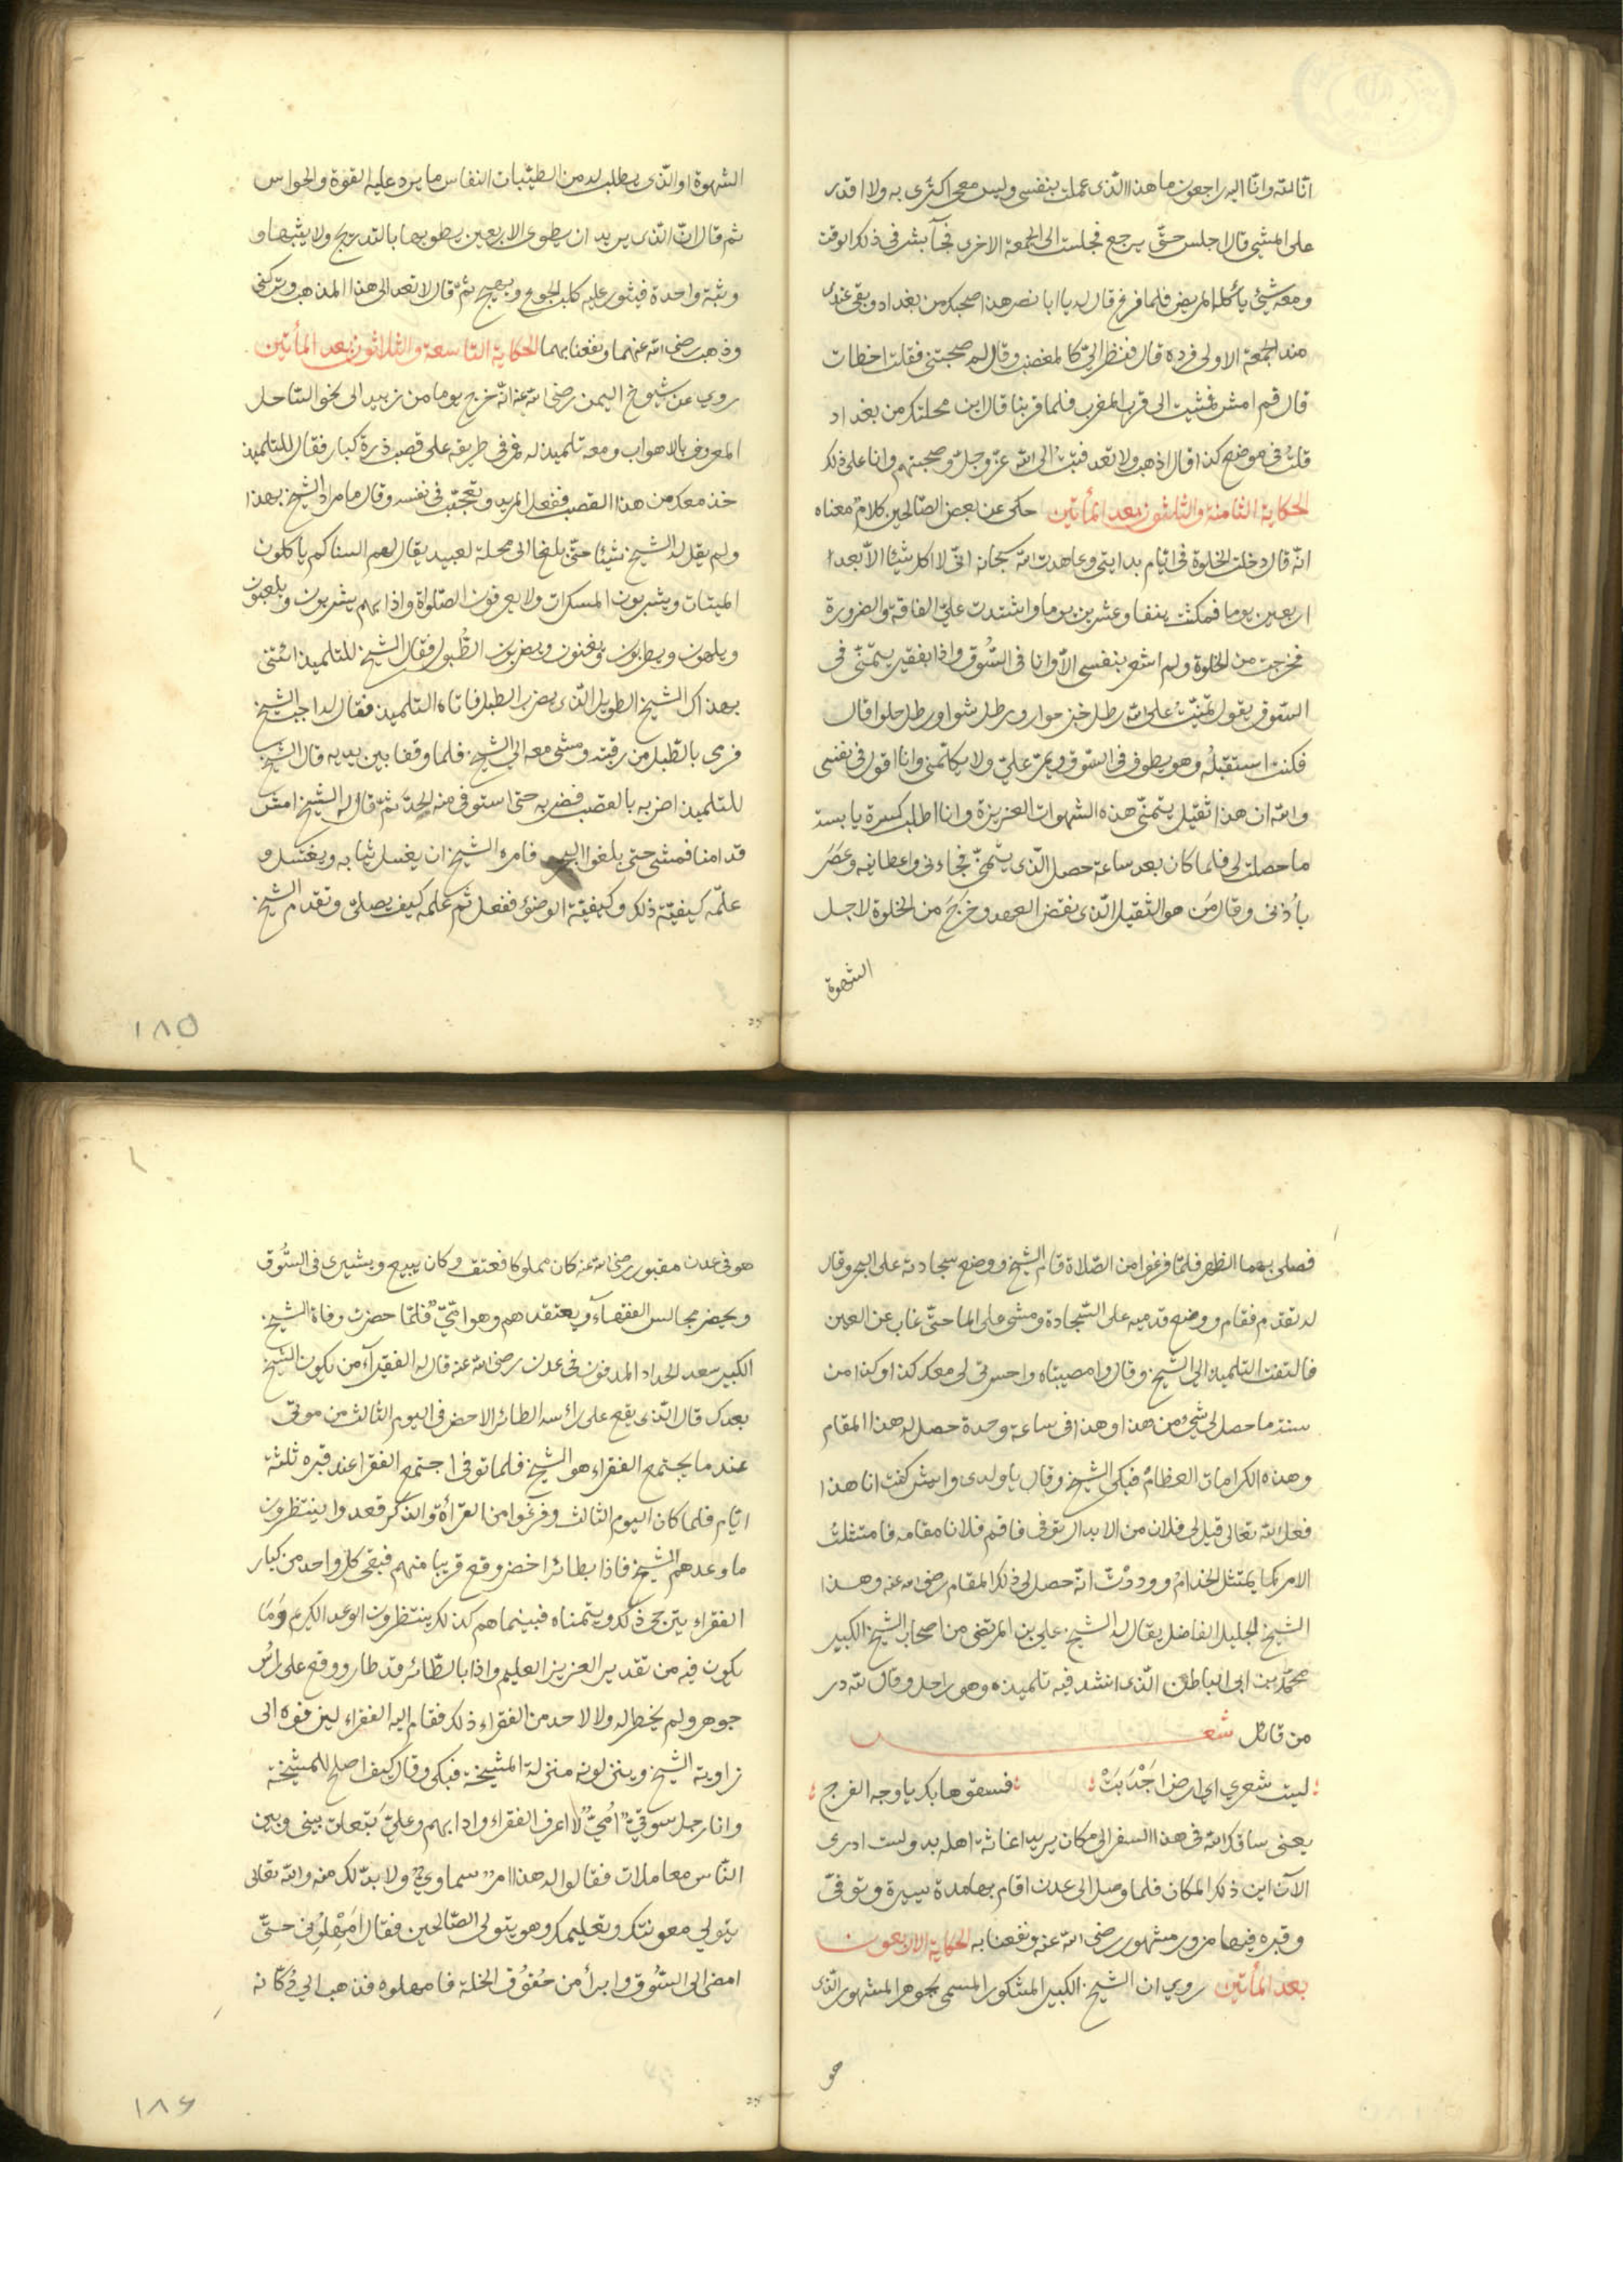 انا لله وانا اليه راجعون ما هذا الذى عملت بنفسى وليس معى اكترى به ولا اقدر
على المشى قال اجلس حتى يرجع فجلست الى الجمعة الاخرى فجآ بشر فى ذلك الوقت
ومعه شيئ يأكله المريض فلما فرغ قال له يا ابا نصر هذا صحبك من بغداد وبقى عندى
منذ الجمعة الاولى فرده قال فنظر الىّ كالمغضب وقال لم صحبتنى فقلت اخطات
قال قم امش فمشيت الى قرب المغرب فلما قربنا قال اين محلتك من بغداد
قلت فى موضع كذا قال اذهب ولا تعد فتبت الى الله عز وجل وصحبتهم وانا على ذلك
الحكاية الثامنة والثلثون بعد المأتين حكى عن بعض الصالحين كلام معناه
انه قال دخلت الخلوة فى ايام بدايتى وعاهدت الله سبحانه انى لا اكل شيئا الا بعد
اربعين يوما فمكثت نيفا وعشرين يوما واشتدت علىّ الفاقة والضرورة
فخرجت من الخلوة ولم اشعر بنفسى الا وانا فى السُّوق واذا بفقير يتمنّى فى
السوق يقول تمنيت على الله رطل خبز حوار ورطل شوا ورطل حلوا قال
فكنت استقبله وهو يطوف فى السوق ويمر علىّ ولا يكلمنى وانا اقول فى نفسى
والله ان هذا ثقيل يتمنى هذه الشهوات العزيزة وانا اطلب كسرة يابسة
ما حصلت لى فلما كان بعد ساعة حصل الذى يتمنّ فجاءنى واعطانيه وعَصَرَ
باُذنى وقال مَن هو الثقيل الذى نقض العهد وخرَجَ من الخلوة لاجل
الشهوة
الشهوة او الذى يطلب له من الطيّبات النفاس ما يرد عليه القوة والحواس
ثم قال ان الذى يريد ان يطوى الاربعين يطويها بالتدريج ولا يثبها و
وثبة واحدة فيثور عليه كلب الجوع ويهيج ثم قال لا تعد الى هذا المذهب وتركنى
وذهب رضى الله عنهما ونفعنا بهما الحكاية التاسعة والثلاثون بعد المأتين
روي عن شيوخ اليمن رضى الله عنه انه خرج يوما من زبيد الى نحو الساحل
المعروف بالاهواب ومعه تلميذ له فمر فى طريقه على قصب ذرة كبار فقال للتلميذ
خذ معك من هذا القصب ففعل المريد وتعجّب فى نفسه وقال ما مراد الشيخ بهذا
ولم يقل له الشيخ شيئا حتى بلغا الى محلة لعبيد يقال لهم السناكم ياكلون
الميتات ويشربون المسكرات ولا يعرفون الصلواة واذا بهم يشربون ويلعبون
ويلهون ويطربون ويغنون ويضربون الطُّبول فقال الشيخ للتلميذ ائتنى
بهذاك الشيخ الطويل الذى يضرب الطبل فاتاه التلميذ فقال له اجب الشيخ
فرمى بالطبل من رقبته ومشى معه الى الشيخ فلما وقفا بين يديه قال الشيخ
للتلميذ اضربه بالقصب فضربه حتى استوفى منه الحدّ ثم قال له الشيخ امش
قدامنا فمشى حتى بلغوا البحر فامره الشيخ ان يغسل ثيابه ويغتسل و
علّمه كيفيّة ذلك وكيفيّة الوضئ ففعل ثم علمه كيف يصلى وتقدم الشيخ
١٨٥
فصلى بهما الظهر فلمّا فرغوا من الصّلاة قام الشيخ ووضع سجادته على البحر وقال
له تقدم فقام ووضع قدميه على السّجادة ومشى على الما حتى غاب عن العين
فالتفت التلميذ الى الشيخ وقال وا مصيبتاه واحسرتى لى معك كذا وكذا من
سنة ما حصل لى شئ من هذا وهذا فى ساعة وحدة حصل له هذا المقام
وهذه الكرامات العظام فبكى الشيخ وقال يا ولدى وايش كنت انا هذا
فعل الله تعالى قيل لى فلان من الابدال توفى فاقم فلانا مقامه فامتثلت
الامر كما يمتثل الخدام ووددْت انّه حصل لى ذلك المقام رضى الله عنه وهذا
الشيخ الجليل الفاضل يقال له الشيخ علي بن المرتضى من اصحاب الشيخ الكبير
محمد بن ابى الباطل الذى انشد فيه تلميذه وهو راحل وقال لله در
من قائل شعر
ليت شعري اي ارض اَجْدَبَتْ فسقوها بك يا وجه الفرج
يعنى ساقك الله فى هذا السفر الى مكان يريد اغاثة اهله بك ولست ادرى
الآن اين ذلك المكان فلما وصل الى عدن اقام بها مدة يسيرة وتوفىّ
وقبره فيها مزور مشهور رضى الله عنه ونفعنا به الحكاية الاربعون
بعد المأتين روي ان الشيخ الكبير المشكور المسمى بجوهر المشهور الذى
هو
هو فى عدن مقبور رضى الله عنه كان مملوكا فعتق وكان يبيع ويشترى فى السُّوق
ويحضر مجالس الفقهآء ويعتقدهم وهو امّىّ فلمّا حضرت وفاة الشيخ
الكبير سعد الحداد المدفون فى عدن رضى الله عنه قال له الفقرآء من يكون الشيخ
بعدك قال الذى يقع على رأسه الطائر الاخضر فى اليوم الثالث من موتى
عند ما يجتمع الفقراء هو الشيخ فلما توفى اجتمع الفقرا عند قبره ثلثة
ايام فلما كان اليوم الثالث وفرغوا من القرأة والذكر قعدوا ينتظرون
ما وعدهم الشيخ فاذا بطائر اخضر وقع قريبا منهم فبقى كل واحد من كبار
الفقراء يترجى ذلك ويتمناه فبينما هم كذلك ينتظرون الوعد الكريم وَمَا
يكون فيه من تقدير العزيز العليم واذا بالطّائر قد طار ووقع على رأس
جوهر ولم يخطر له ولا لاحد من الفقراء ذلك فقام اليه الفقراء ليزفوه الى
زاوية الشيخ وينزلونه منزلة المشيخة فبكى وقال كيف اصلح للمشيخة
وانا رجل سوقىّ اُمّيّ لا اعرف الفقراء وادابهم وعليّ تَبَعات بينى وبين
النّاس معاملات فقالوا له هذا امر سماويّ ولا بدّ لك منه والله تعالى
يتولى معونتك وتعليمك وهو يتولى الصّالحين فقال اَمْهِلُونى حتّى
امضى الى السّوق وابرأ من حُقُوق الخلة فامهلوه فذهب الى دُكّانه
١٨٦